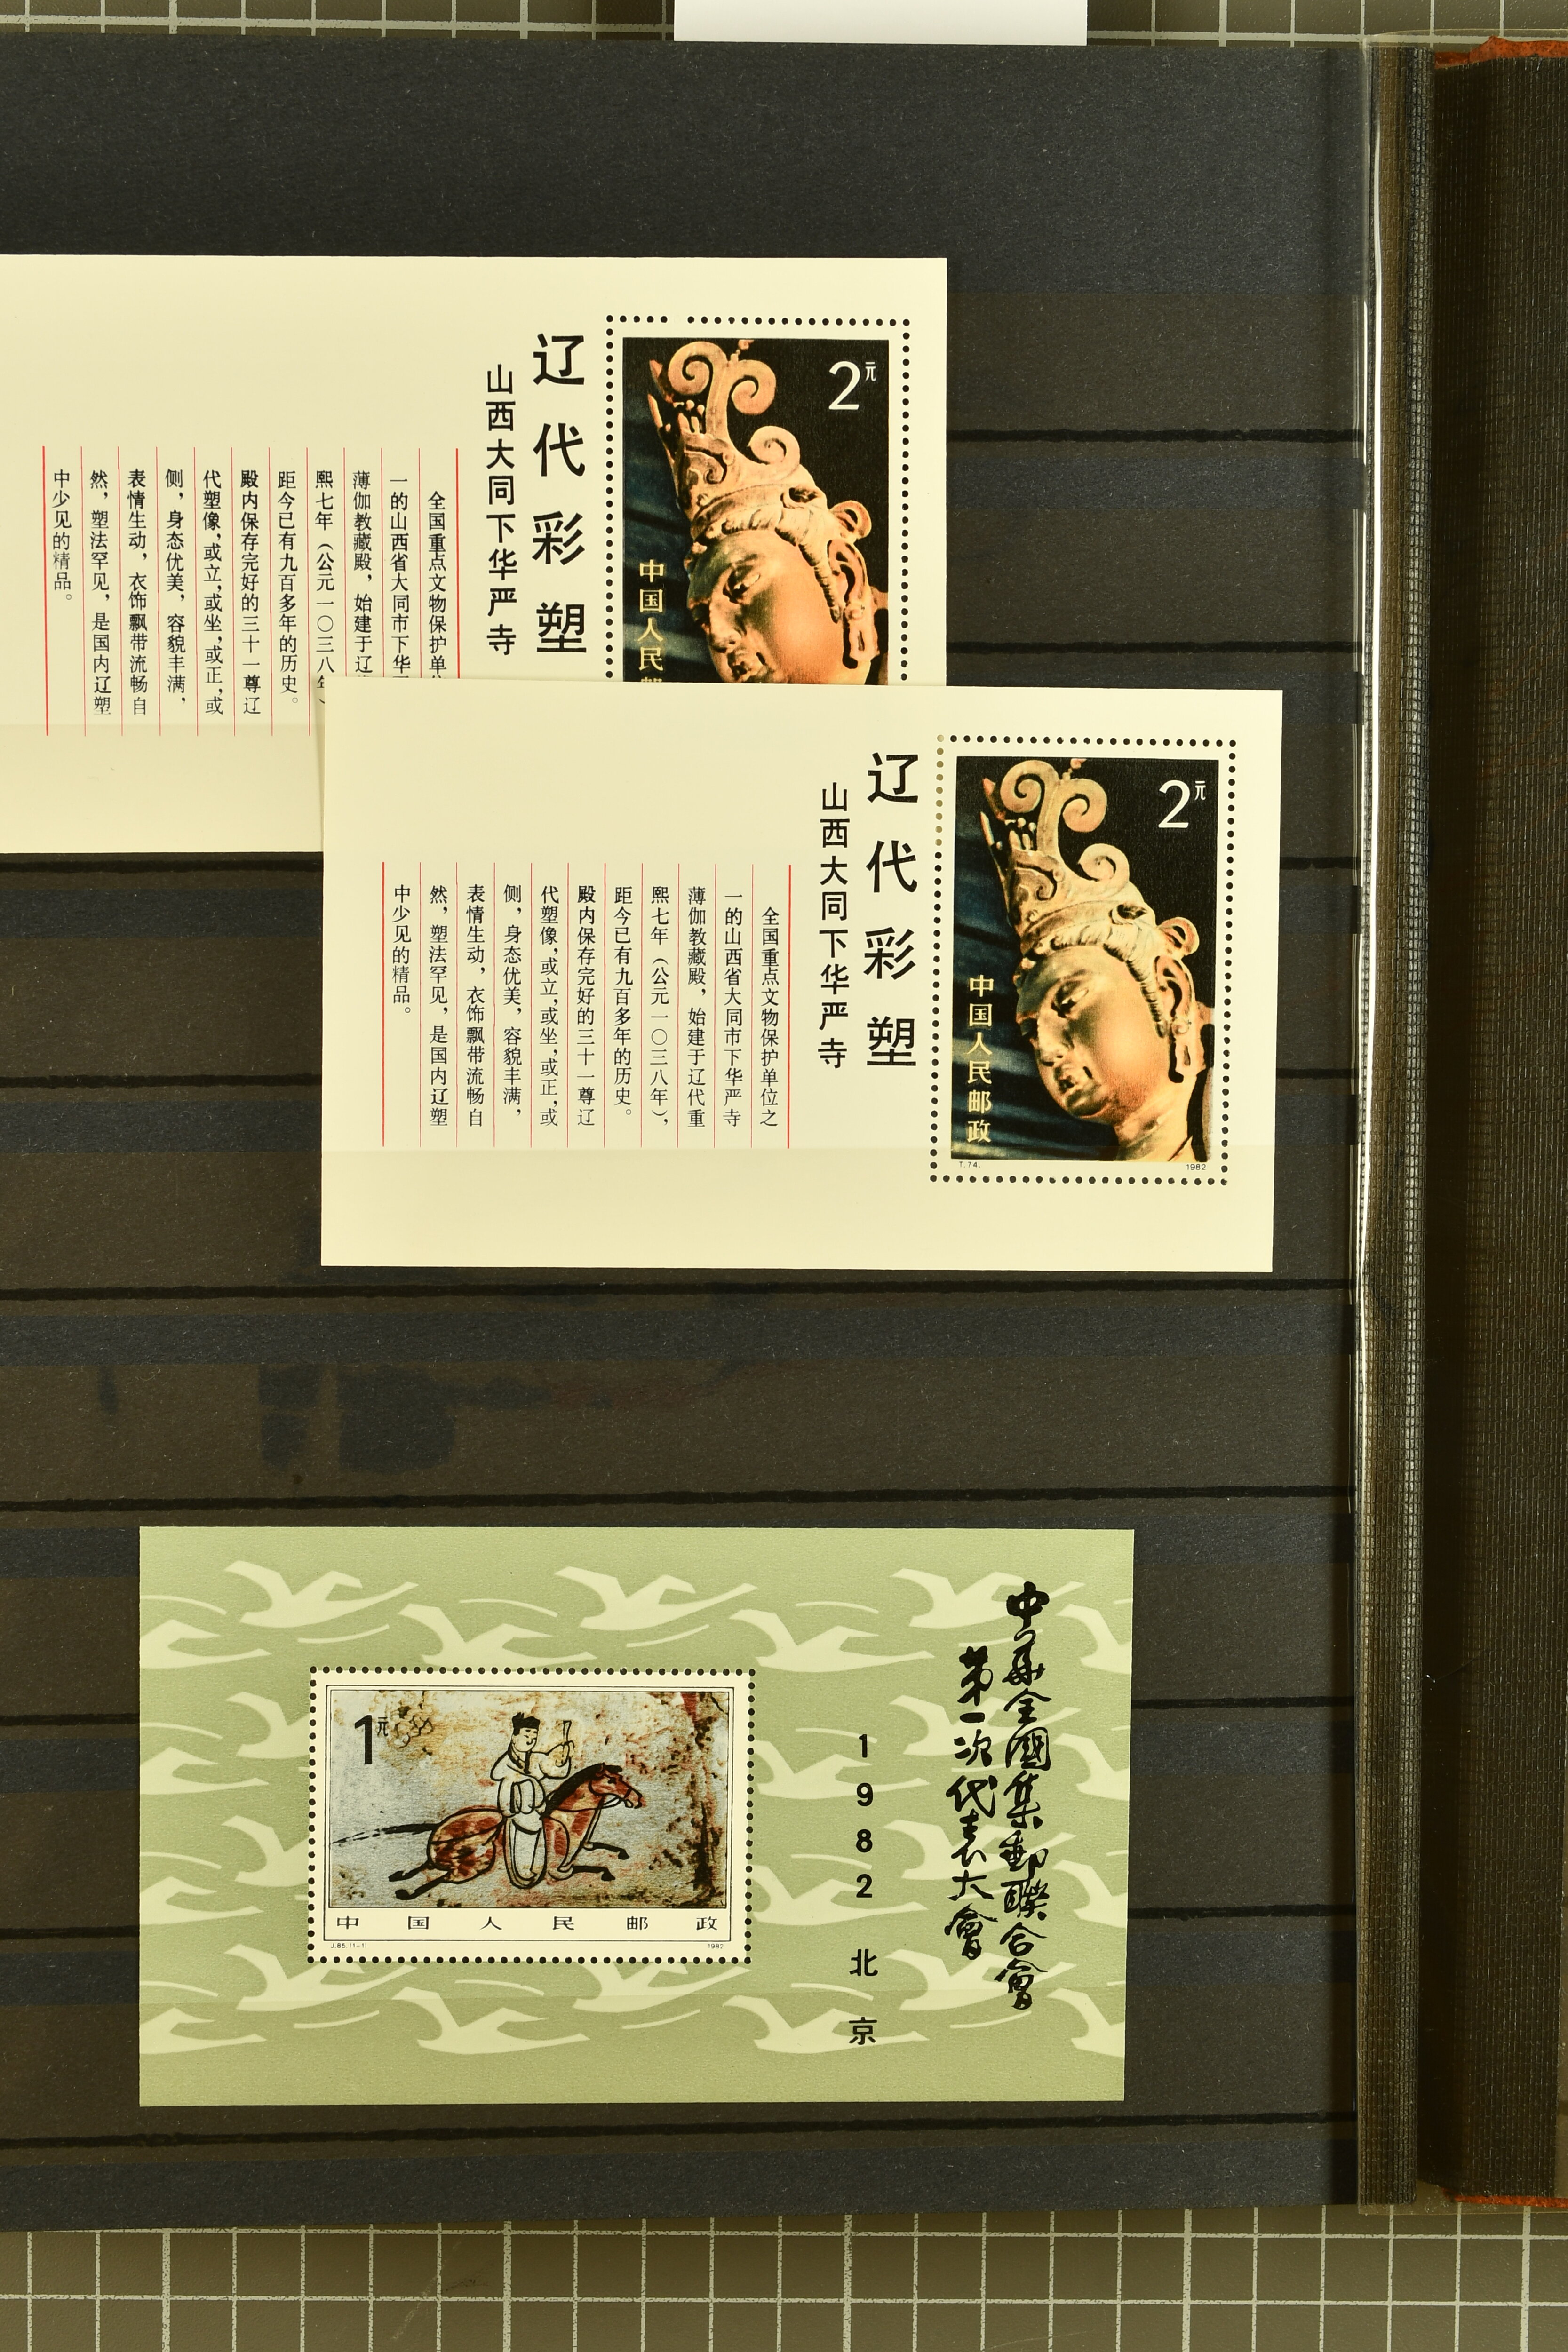 2元
中国人民邮
辽代彩塑
山西大同下华严寺
全国重点文物保护单位
一的山西省大同市下华
薄伽教藏殿，始建于辽
熙七年（公元一〇三八年
距今已有九百多年的历史。
殿内保存完好的三十一尊辽
代塑像，或立，或坐，或正，或
侧，身态优美，容貌丰满，
表情生动，衣饰飘带流畅自
然，塑法罕见，是国内辽塑
中少见的精品。
2元
中国人民邮政
T.74.
1982
辽代彩塑
山西大同下华严寺
全国重点文物保护单位之
一的山西省大同市下华严寺
薄伽教藏殿，始建于辽代重
熙七年（公元一〇三八年），
距今已有九百多年的历史。
殿内保存完好的三十一尊辽
代塑像，或立，或坐，或正，或
侧，身态优美，容貌丰满，
表情生动，衣饰飘带流畅自
然，塑法罕见，是国内辽塑
中少见的精品。
中华全國集郵聯合會
第一次代表大會
1982北京
1元
中国人民邮政
J.85.(1-1)
1982